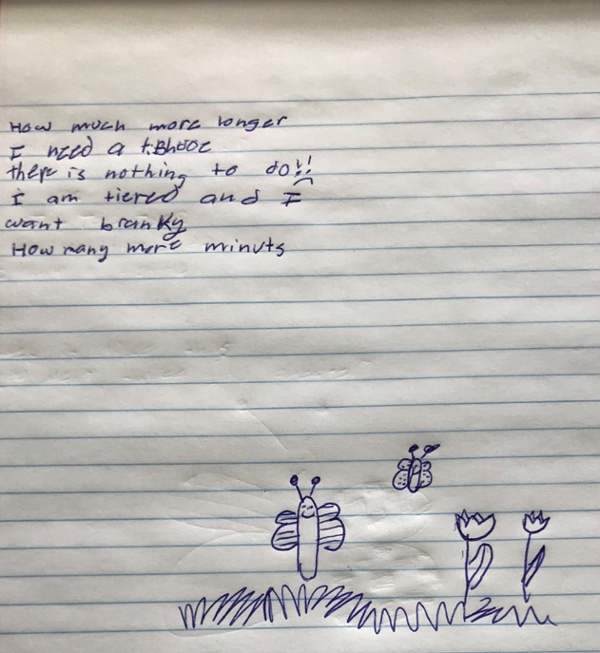 How much more longer
I need a
there is nothing to do!!
i am tiered and I
want branky
How many more minuts